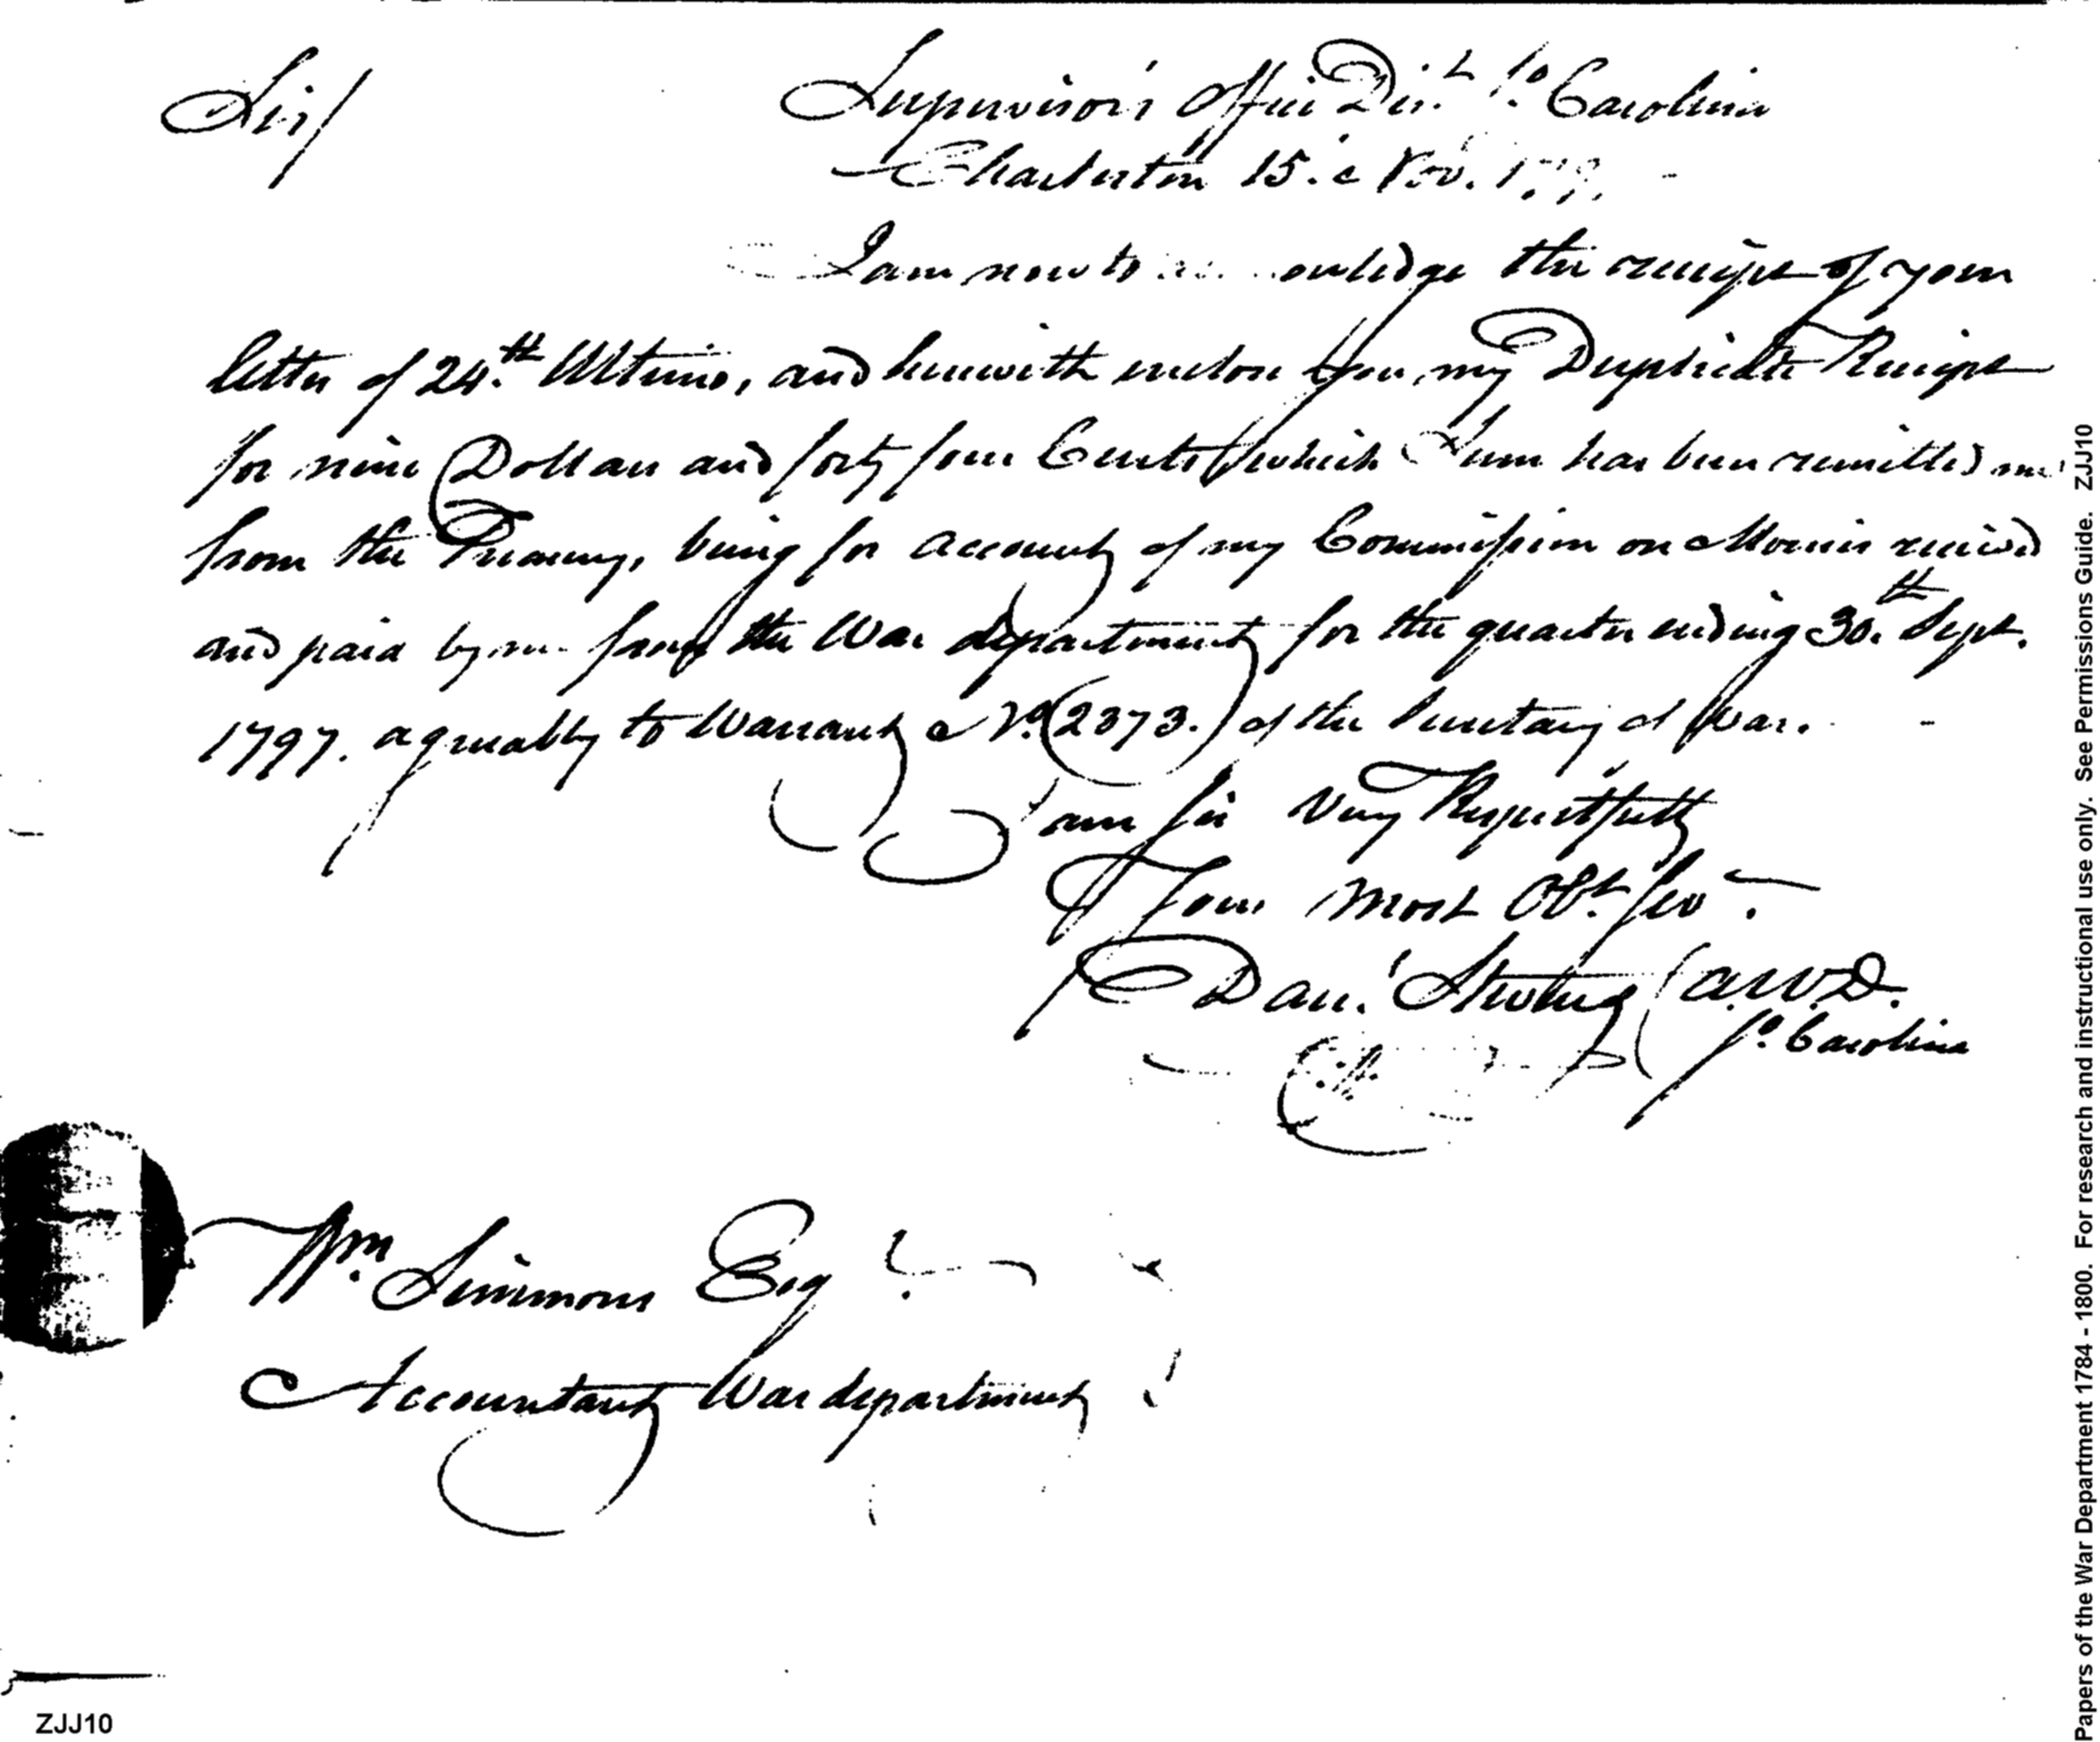 Sir/
Supervisor's Office Dist. So. Carolina
Charleston 15. Nov.
I am now to the receipt of your
letter of 24th Ultimo, and herewith enclose you, my Duplicate Receipt
for nine Dollars and forty four Cents, which Sum has been remitted me
from the Treasury, being for account of my Commission on Monies received
and paid by me from the War department for the quarter ending 30th Sept.
1797. agreeably to Warrant No. (2373.) of the Secretary of War.
I am Sir Very Respectfully
Your Most Obt. Serv.
Danl. Stevens A.W.D.
So. Carolina
Wm. Simmons Esqr.
Accountant War department
ZJJ10
Papers of the War Department 1784 - 1800. For research and instructional use only. See Permissions Guide. ZJJ10